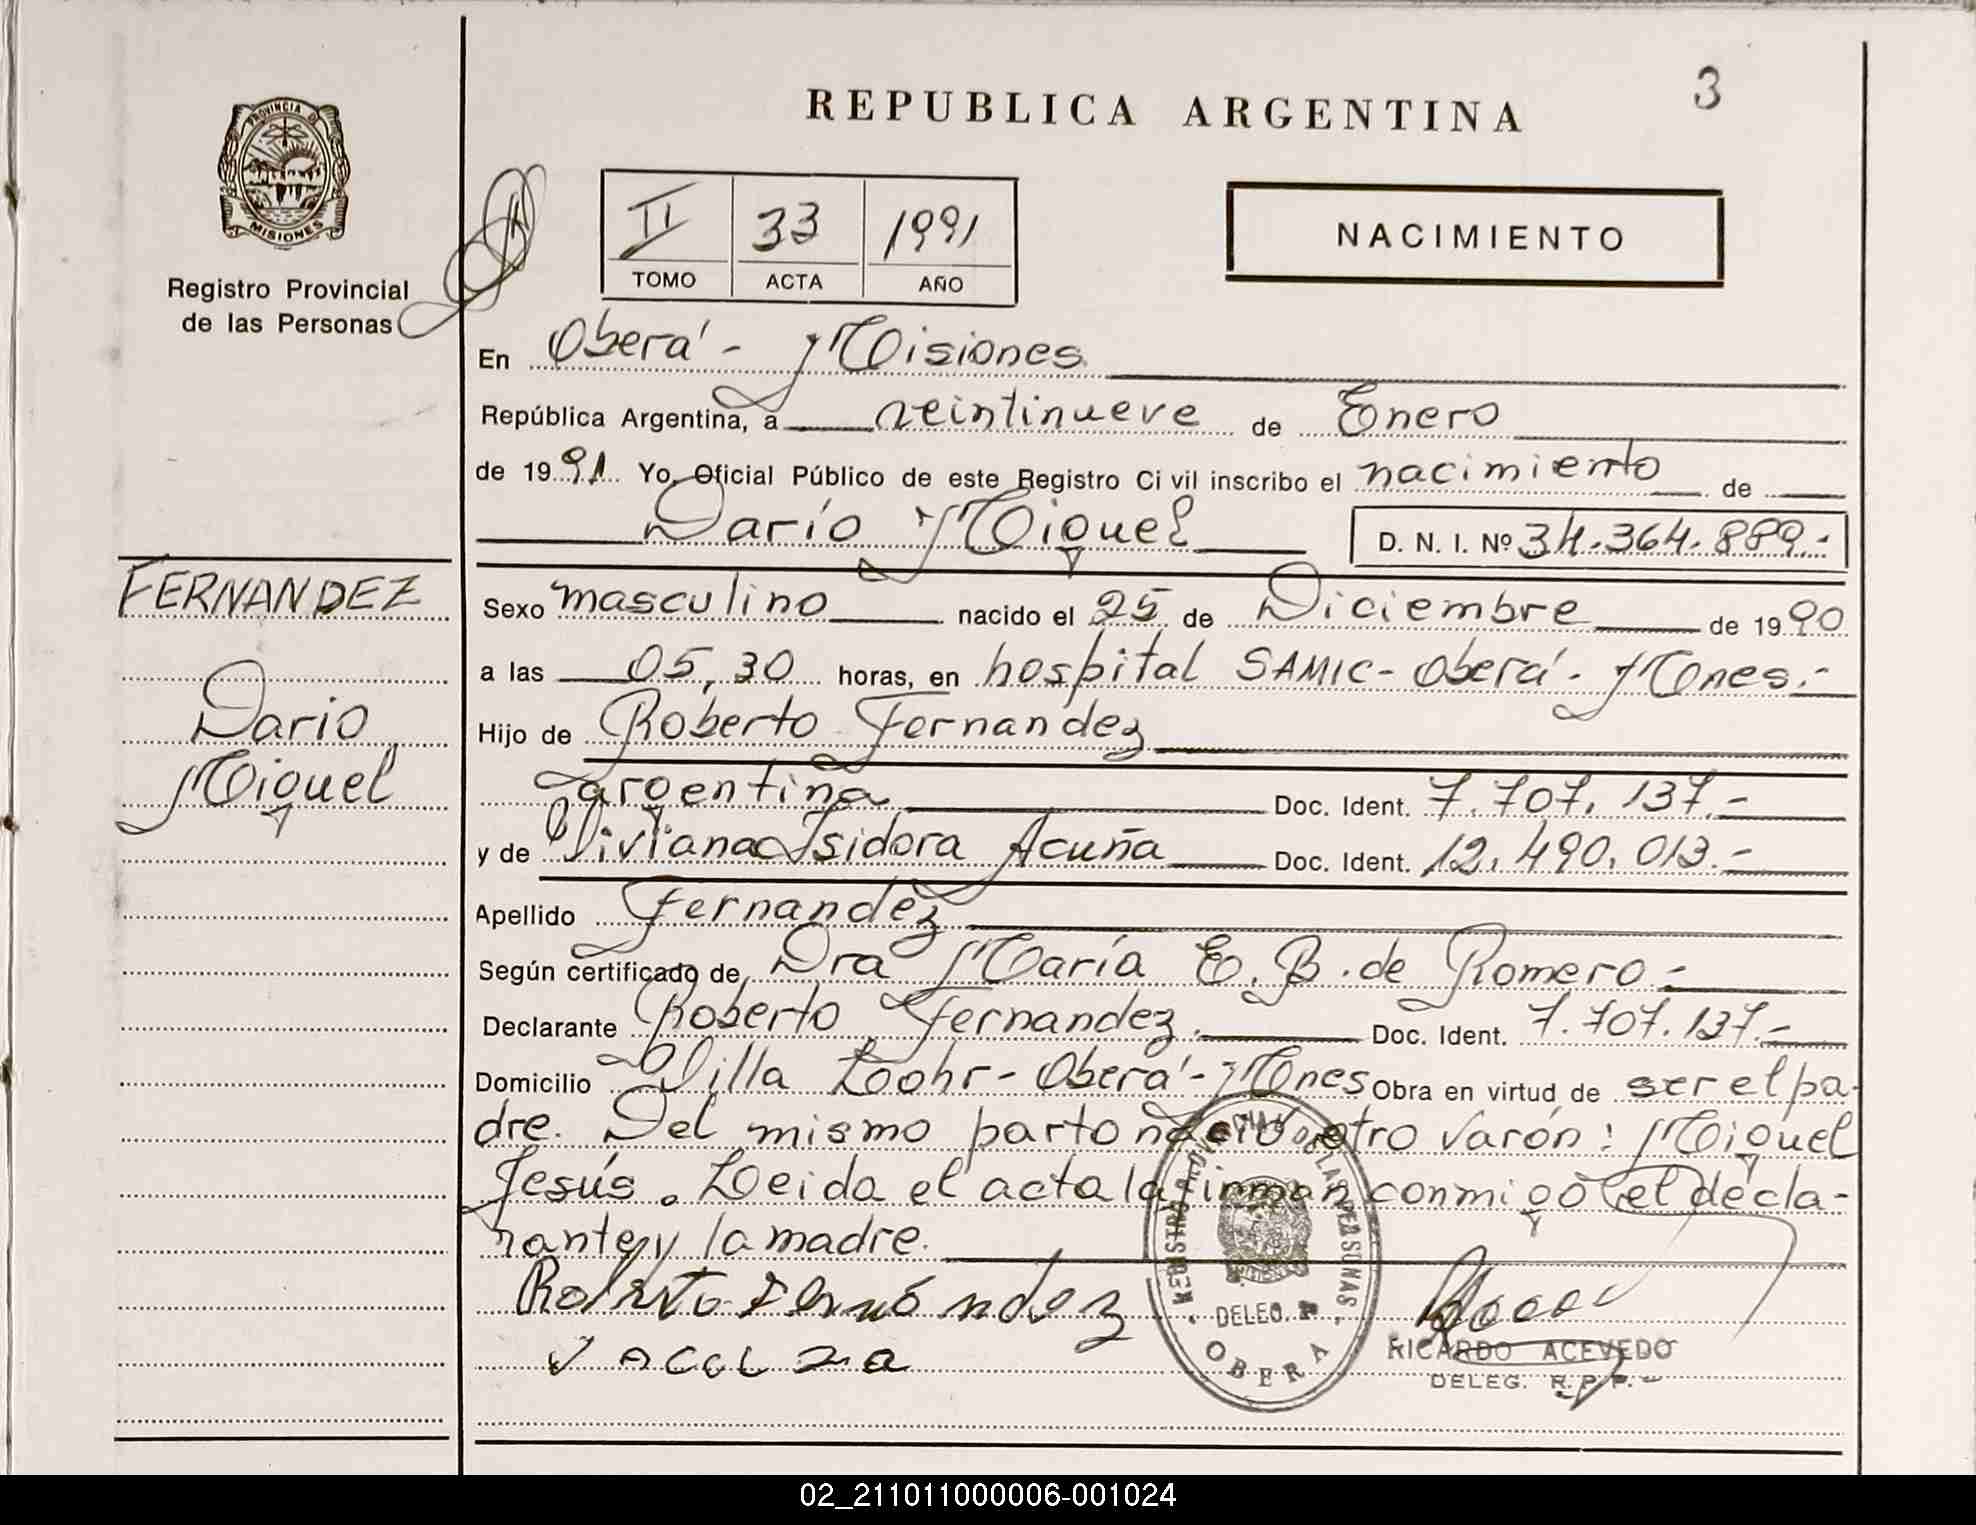 3
REPUBLICA ARGENTINA
PROVINCIA DE
MISIONES
Registro Provincial
de las Personas
II 33 1991
TOMO ACTA AÑO
NACIMIENTO
En Oberá - Misiones
República Argentina, a veintinueve de Enero
de 1991 Yo, Oficial Público de este Registro Civil inscribo el nacimiento de
Darío Miguel D. N. I. Nº 34.364.889.-
FERNANDEZ
Dario
Miguel
Sexo masculino nacido el 25 de Diciembre de 1990
a las 05,30 horas, en hospital SAMIC - Oberá - Mones.-
Hijo de Roberto Fernandez
argentina Doc. Ident. 7.707.137.-
y de Viviana Isidora Acuña Doc. Ident. 12.490.013.-
Apellido Fernandez
Según certificado de Dra María E. B. de Romero.-
Declarante Roberto Fernandez. Doc. Ident. 7.707.137.-
Domicilio Villa Loohr - Oberá - Mones Obra en virtud de ser el pa-
dre. Del mismo parto nació otro varón: Miguel
Jesús. Leida el acta la firman conmigo el decla-
rante y la madre.
Roberto Fernández
V Acuña
REGISTRO PROVINCIAL DE LAS PERSONAS
DELEG.
OBERA
RICARDO ACEVEDO
DELEG. R. P. P.
02_211011000006-001024